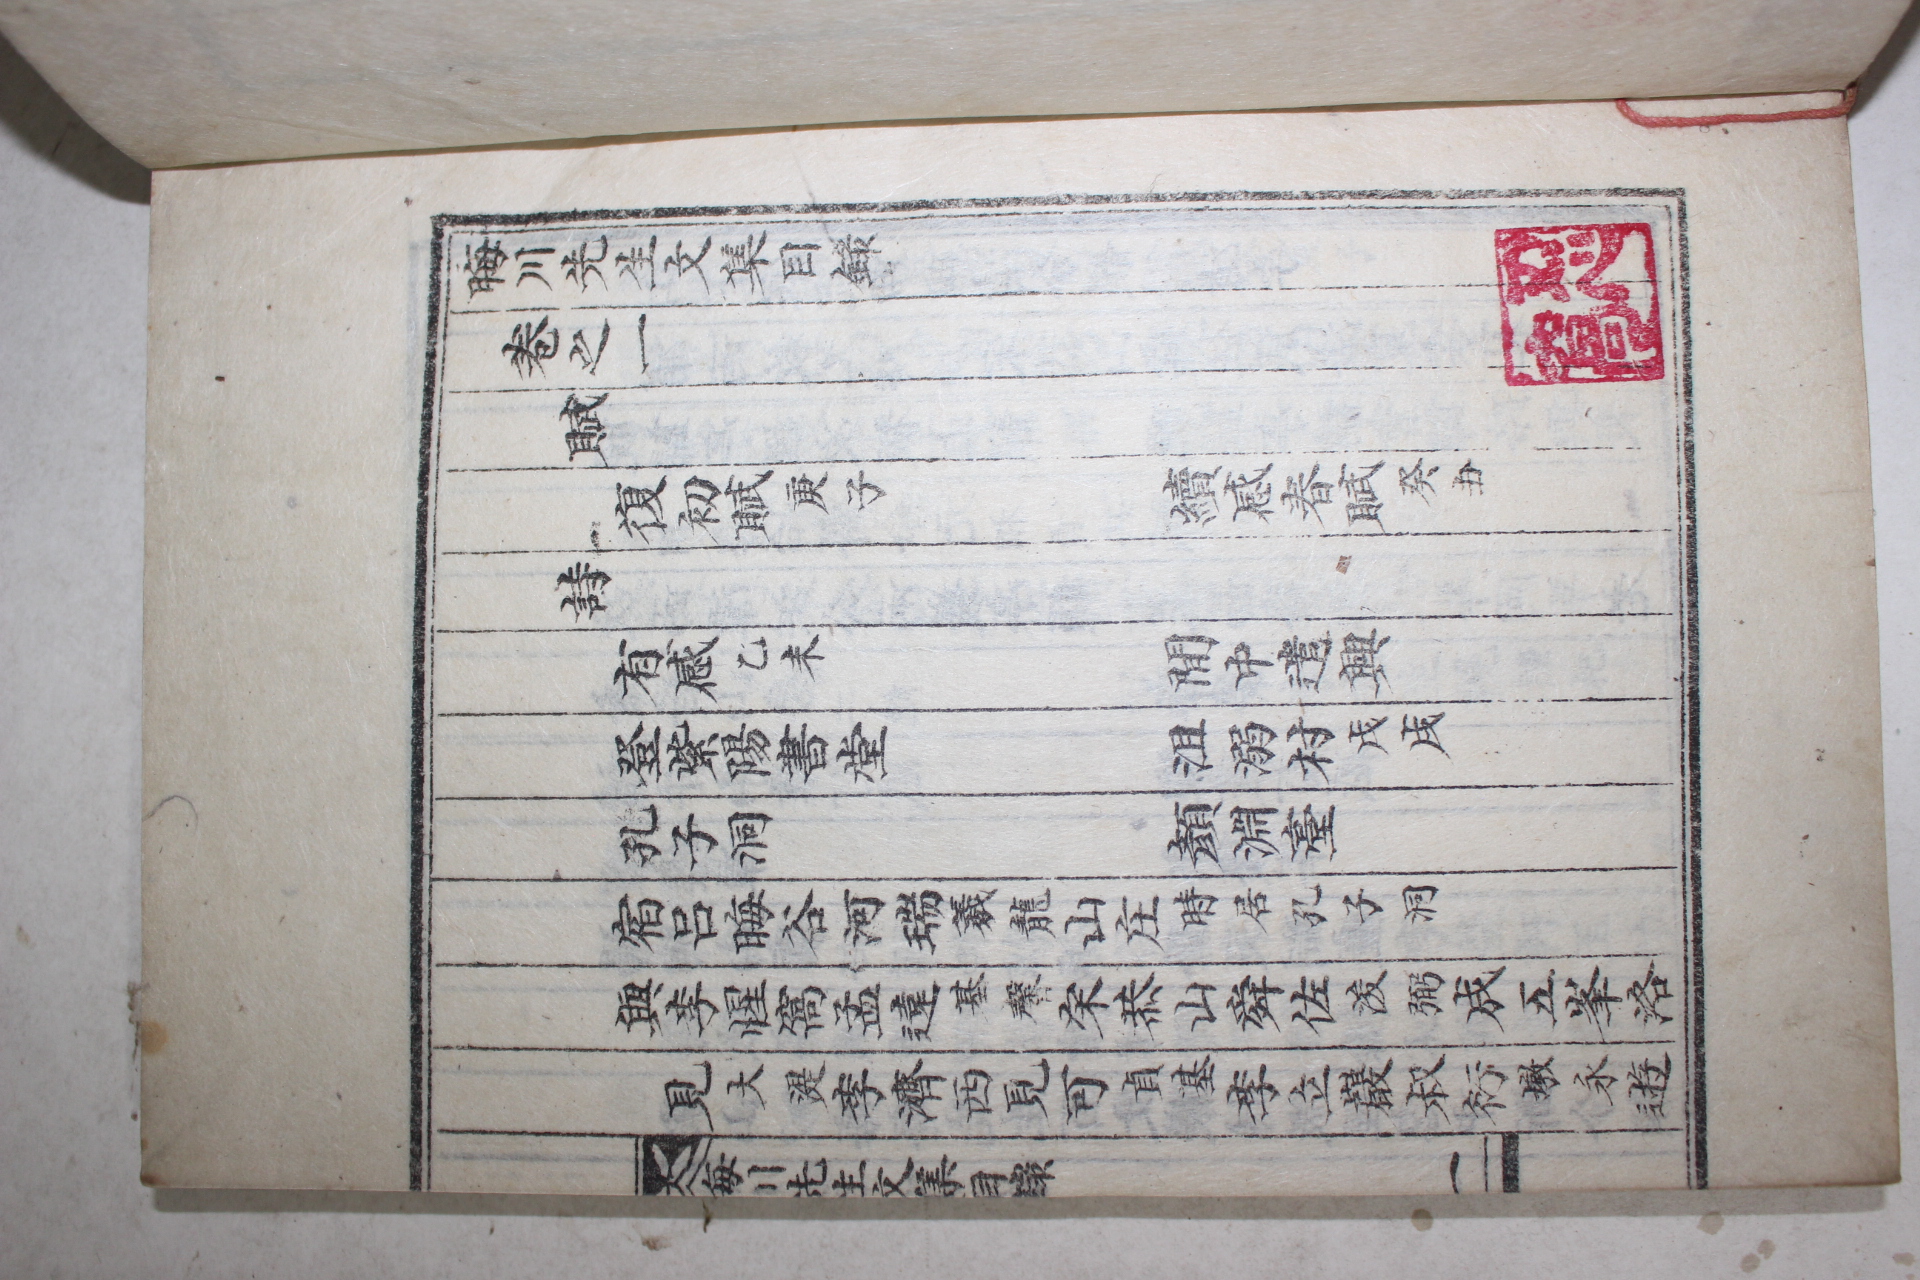 晦川先生文集目錄
卷之一
賦
復初賦庚子 續感春賦癸丑
詩
有感乙未 閒中遣興
登紫陽書堂 沮溺村戊戌
孔子洞 顏淵臺
宿呂晦谷河瑞羲龍山庄時居孔子洞
與李惺窩孟達基馨宋恭山舜佐浚弼成五峯洛
見大湜李濟西見可貞基李立巖叔衍墩永遊
晦川先生文集目錄 一